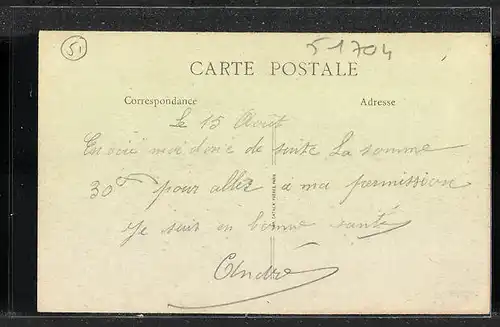 51
51704
CARTE POSTALE
Correspondance
Adresse
Le 15 Août
Envoié moi donc de suite La somme
30f pour aller a ma permission
Je suis en bonne santé
André